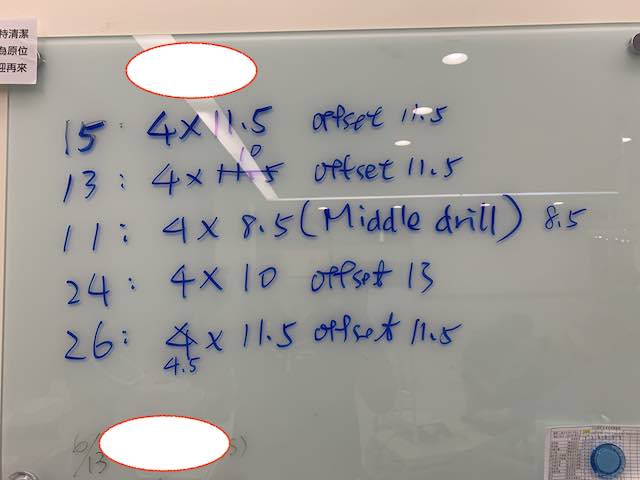 持清潔
為原位
迎再來
15: 4×11.5 offset 11.5
10
13: 4×11.5 offset 11.5
11: 4×8.5 (Middle drill) 8.5
24: 4×10 offset 13
26: 4×11.5 offset 11.5
4.5
6/13